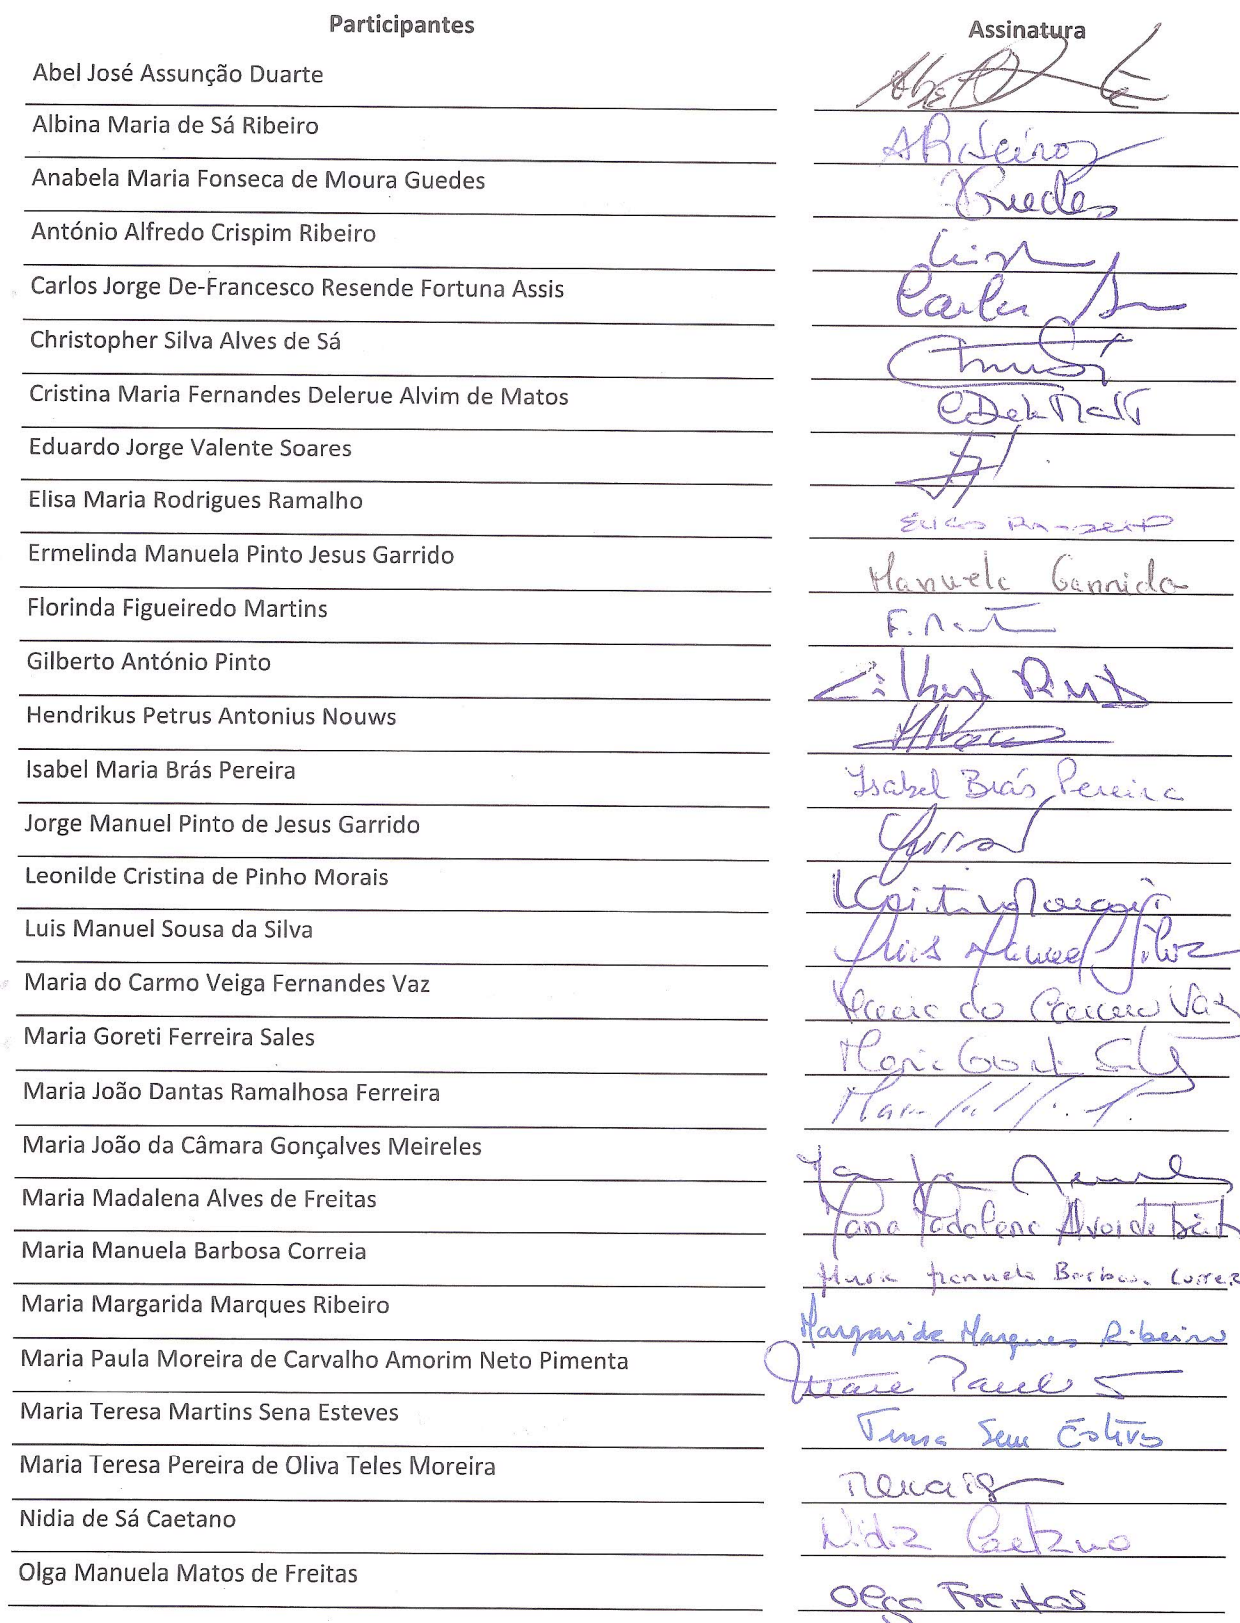 Participantes Assinatura
Abel José Assunção Duarte
Albina Maria de Sá Ribeiro ARibeiro
Anabela Maria Fonseca de Moura Guedes Guedes
António Alfredo Crispim Ribeiro
Carlos Jorge De-Francesco Resende Fortuna Assis Carlos
Christopher Silva Alves de Sá
Cristina Maria Fernandes Delerue Alvim de Matos
Eduardo Jorge Valente Soares
Elisa Maria Rodrigues Ramalho Elisa
Ermelinda Manuela Pinto Jesus Garrido Manuela Garrido
Florinda Figueiredo Martins
Gilberto António Pinto
Hendrikus Petrus Antonius Nouws
Isabel Maria Brás Pereira Isabel Brás Pereira
Jorge Manuel Pinto de Jesus Garrido
Leonilde Cristina de Pinho Morais
Luis Manuel Sousa da Silva Luis Manuel Silva
Maria do Carmo Veiga Fernandes Vaz Maria do Carmo Vaz
Maria Goreti Ferreira Sales
Maria João Dantas Ramalhosa Ferreira
Maria João da Câmara Gonçalves Meireles
Maria Madalena Alves de Freitas Maria Madalena Alves de
Maria Manuela Barbosa Correia Maria Manuela Barbosa Correia
Maria Margarida Marques Ribeiro Margarida Marques Ribeiro
Maria Paula Moreira de Carvalho Amorim Neto Pimenta Maria Paula
Maria Teresa Martins Sena Esteves Teresa Sena Esteves
Maria Teresa Pereira de Oliva Teles Moreira
Nidia de Sá Caetano Nidia Caetano
Olga Manuela Matos de Freitas Olga Freitas